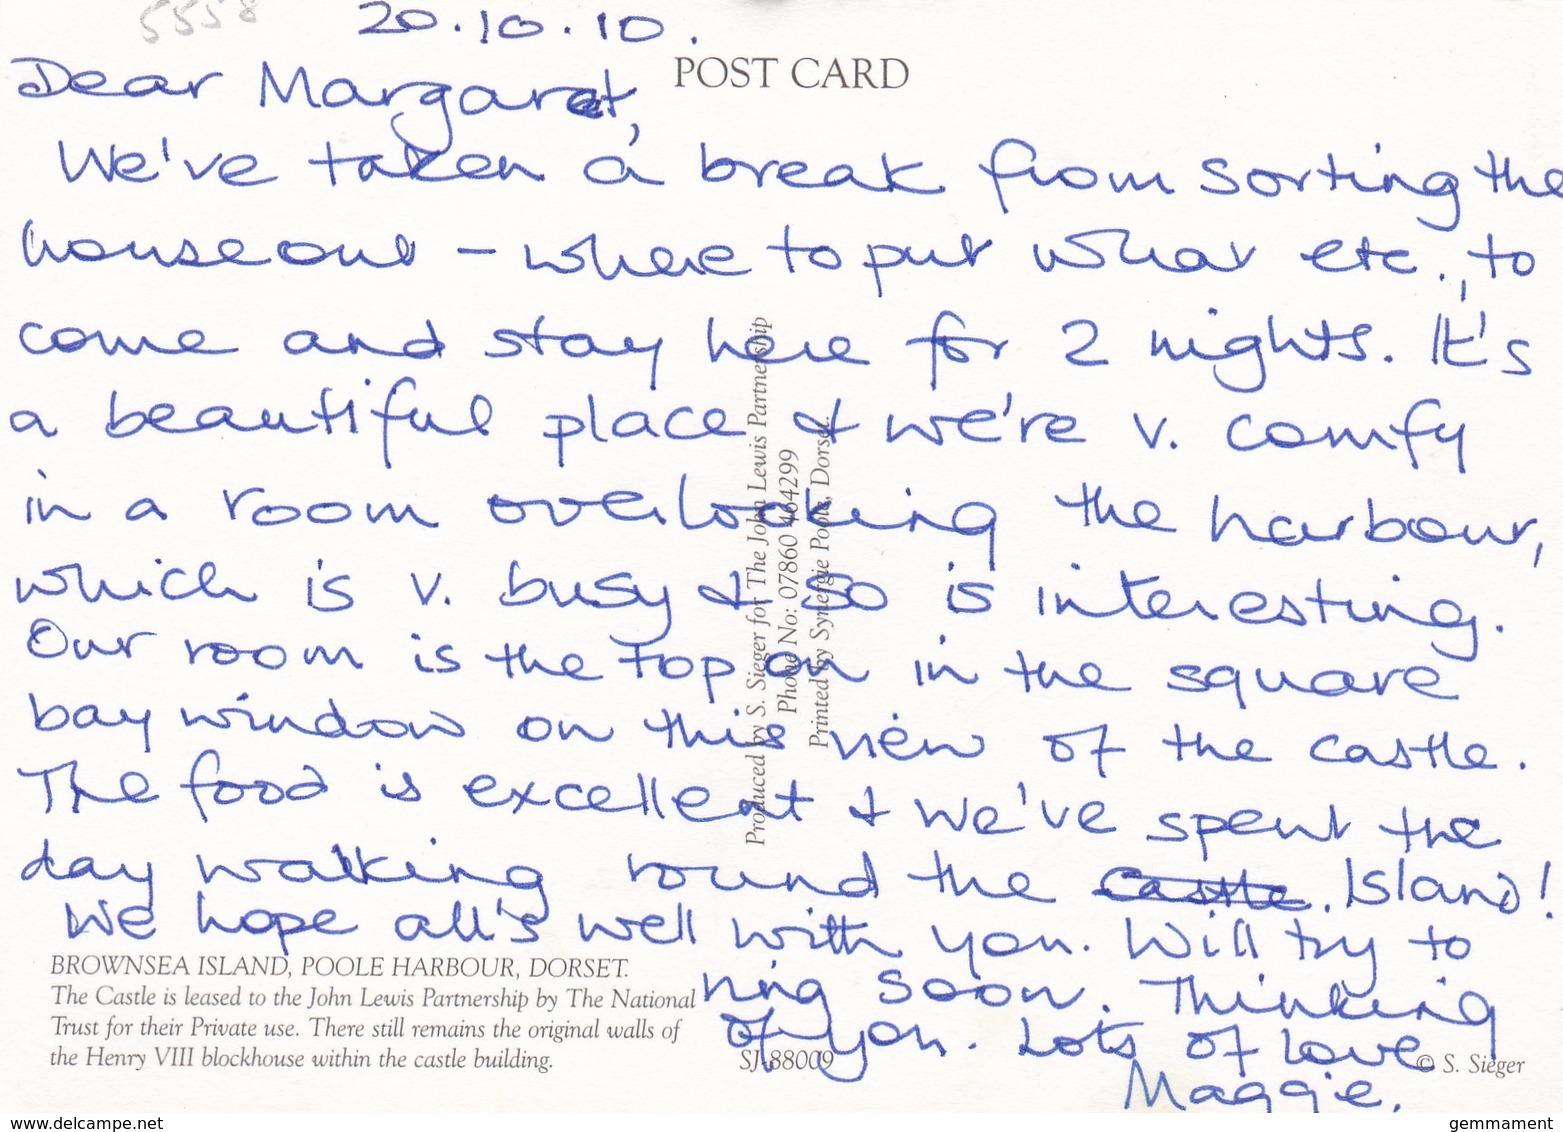 5558
20.10.10.
POST CARD
Dear Margaret,
We've taken a break from sorting the
house out – where to put what etc., to
come and stay here for 2 nights. It's
a beautiful place & we're v. comfy
in a room overlooking the harbour,
which is v. busy & so is interesting.
Our room is the top on in the square
bay window on this view of the castle.
The food is excellent & we've spent the
day walking round the castle. Island!
We hope all's well with you. Will try to
ring soon. Thinking
of you. Lots of love
Maggie.
Produced by S. Sieger for The John Lewis Partnership
Phone No: 07860 464299
Printed by Synergie Poole, Dorset.
BROWNSEA ISLAND, POOLE HARBOUR, DORSET.
The Castle is leased to the John Lewis Partnership by The National
Trust for their Private use. There still remains the original walls of
the Henry VIII blockhouse within the castle building.
SJ 88009
© S. Sieger
www.delcampe.net
gemmament